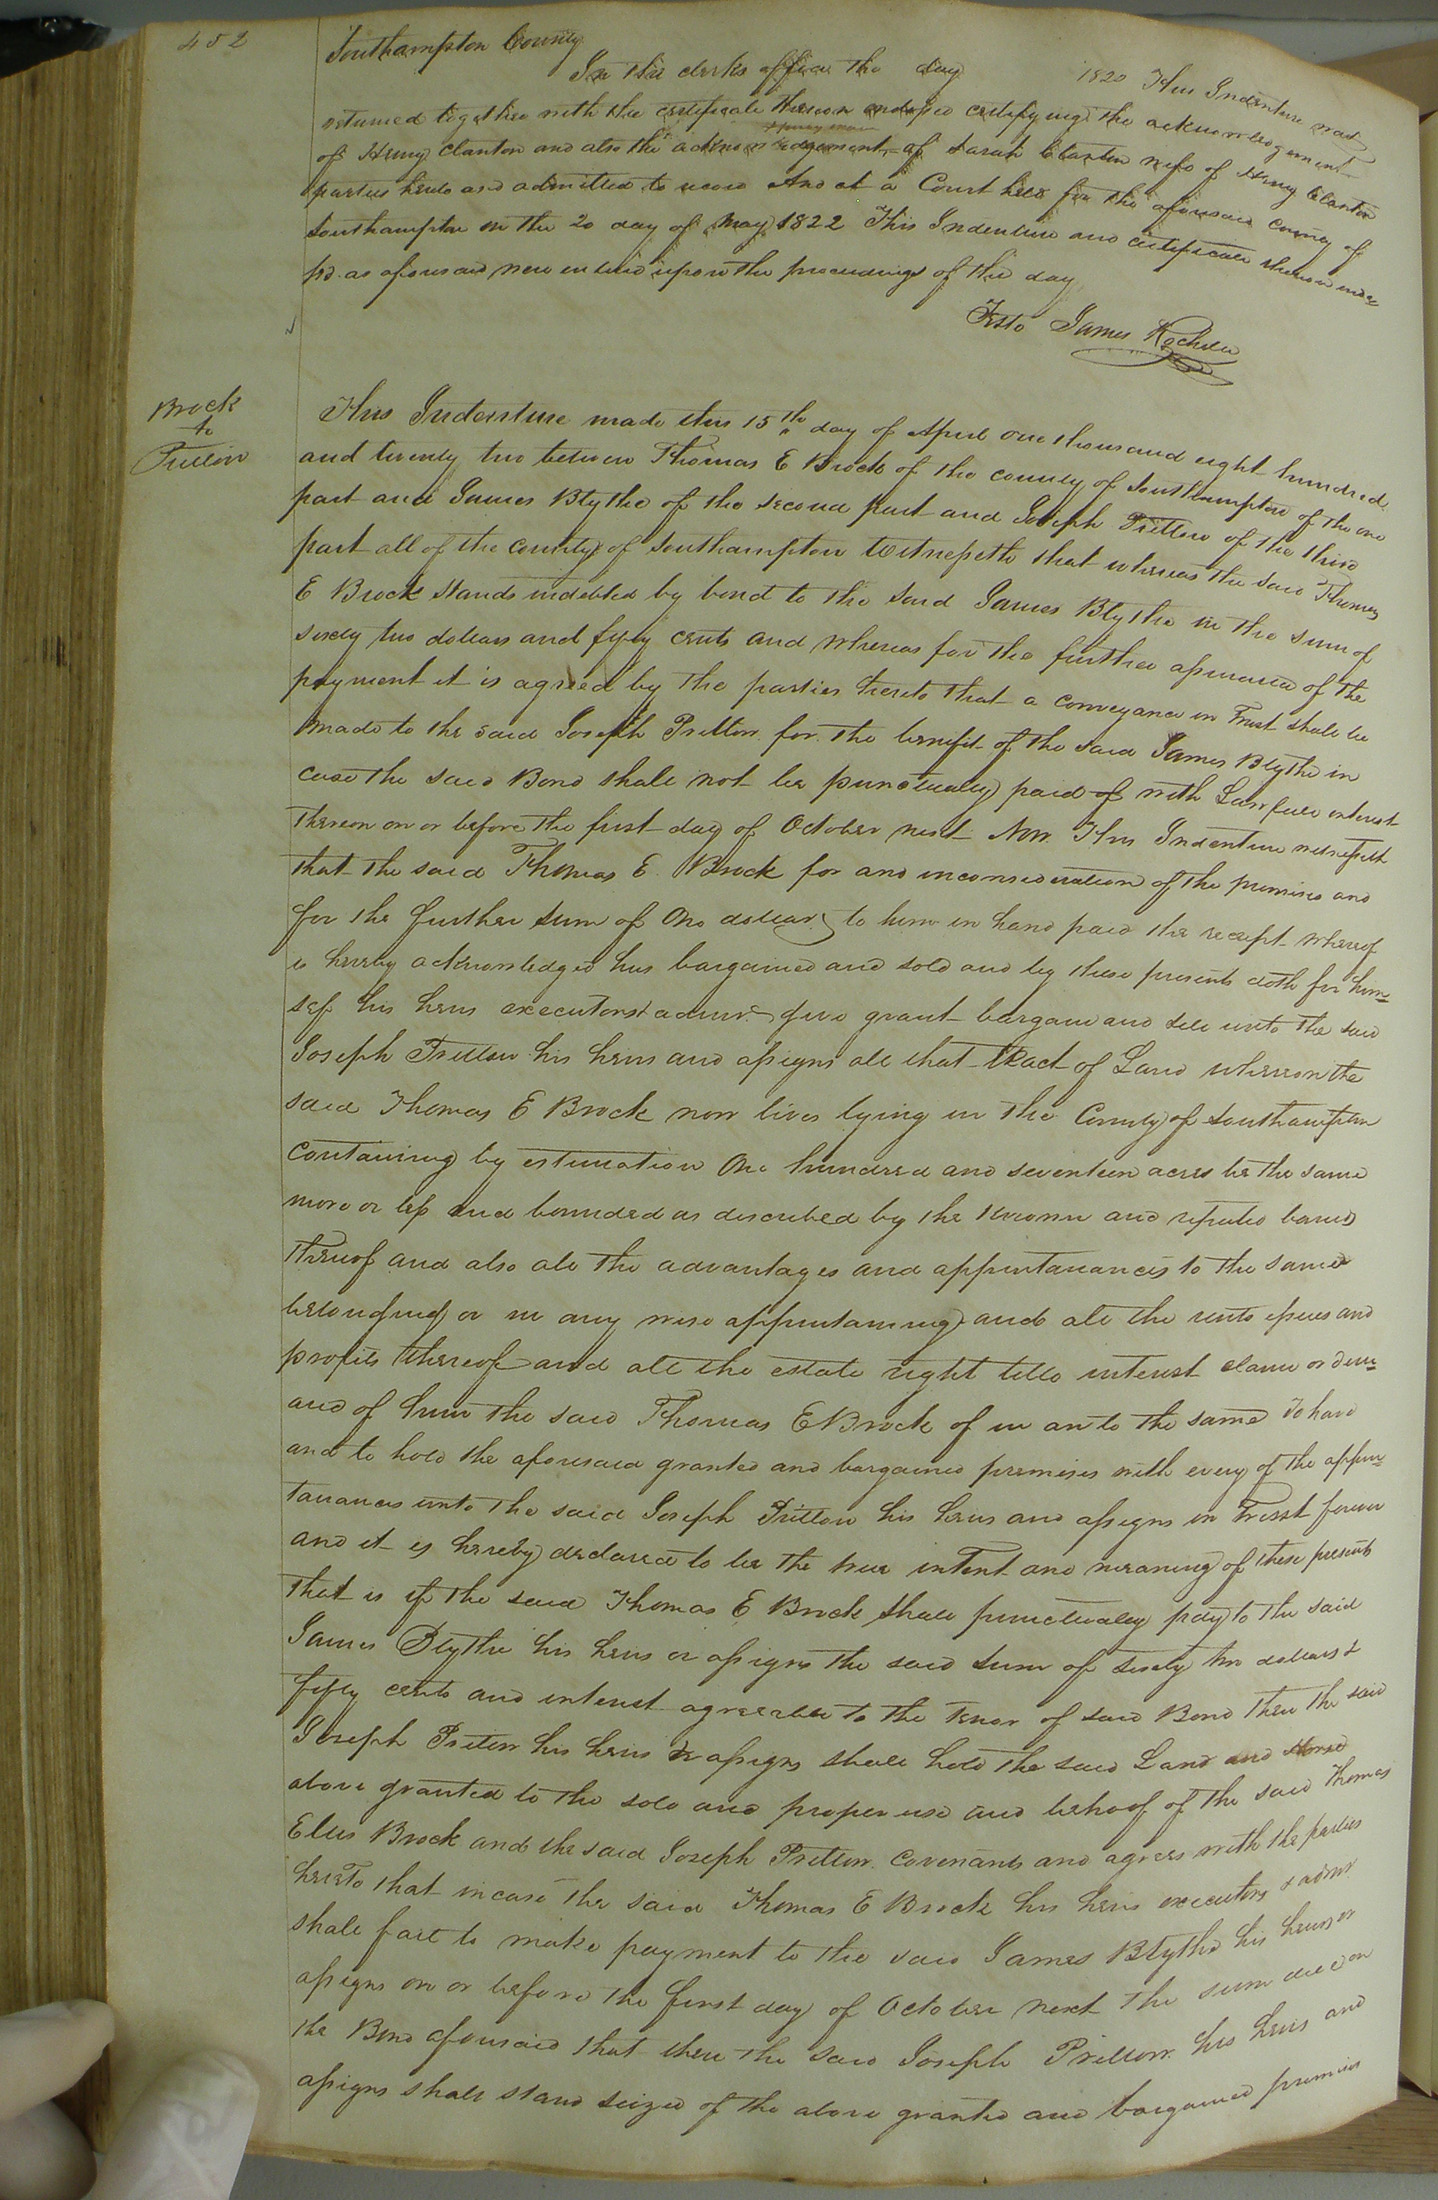 452
Southampton County
In the clerks office the day 1820 This Indenture was
returned together with the certificate thereon endorsed certifying the acknowledgement
of Henry Clanton and also the acknowledgement of Sarah Clanton wife of Henry Clanton
parties hereto and admitted to record And at a Court held for the aforesaid County of
Southampton on the 20 day of May 1822 This Indenture and certificate thereon endor=
sd. as aforesaid were entered upon the proceedings of the day
Teste James Rochelle
Brock
to
Pretlow
This Indenture made this 15th day of April one thousand eight hundred
and twenty two between Thomas E Brock of the county of Southampton of the one
part and James Blythe of the second part and Joseph Pretlow of the third
part all of the county of Southampton Witnesseth that whereas the said Thomas
E Brock stands indebted by bond to the said James Blythe in the sum of
sixty two dollars and fifty cents and whereas for the further assurance of the
payment it is agreed by the parties hereto that a conveyance in Trust shall be
made to the said Joseph Pretlow for the benefit of the said James Blythe in
case the said Bond shall not be punctually paid of with Lawfull interest
thereon on or before the first day of October next Now This Indenture witnesseth
that the said Thomas E. Brock for and inconsideration of the premises and
for the further sum of One dollar to him in hand paid the receipt whereof
is hereby acknowledged has bargained and sold and by these presents doth for him=
self his heirs executors & admrs. give grant bargain and sell unto the said
Joseph Pretlow his heirs and assigns all that tract of Land whereon the
said Thomas E Brock now lives lying in the County of Southampton
containing by estimation One hundred and seventeen acres be the same
more or less and bounded as described by the known and reputed bounds
thereof and also all the advantages and appurtanances to the same
belonging or in any wise appurtaining and all the rents issues and
profits thereof and all the estate right title interest claim or dem=
and of him the said Thomas E Brock of in an to the same To have
and to hold the aforesaid granted and bargained premises with every of the appur=
tanances unto the said Joseph Pretlow his heirs and assigns in Trust forever
and it is hereby declared to be the true intent and meaning of these presents
that is if the said Thomas E Brock shall punctually pay to the said
James Blythe his heirs or assigns the said sum of sixty two dollars &
fifty cents and interest agreeable to the tenor of said Bond then the said
Joseph Pretlow his heirs & assigns shall hold the said Land and Horse
above granted to the sole and proper use and behoof of the said Thomas
Elius Brock and the said Joseph Pretlow covenants and agrees with the parties
hereto that incase the said Thomas E Brock his heirs executors & admrs
shall fail to make payment to the said James Blythe his heirs or
assigns on or before the first day of October next the sum due on
the Bond aforesaid that then the said Joseph Pretlow his heirs and
assigns shall stand seized of the above granted and bargained premises